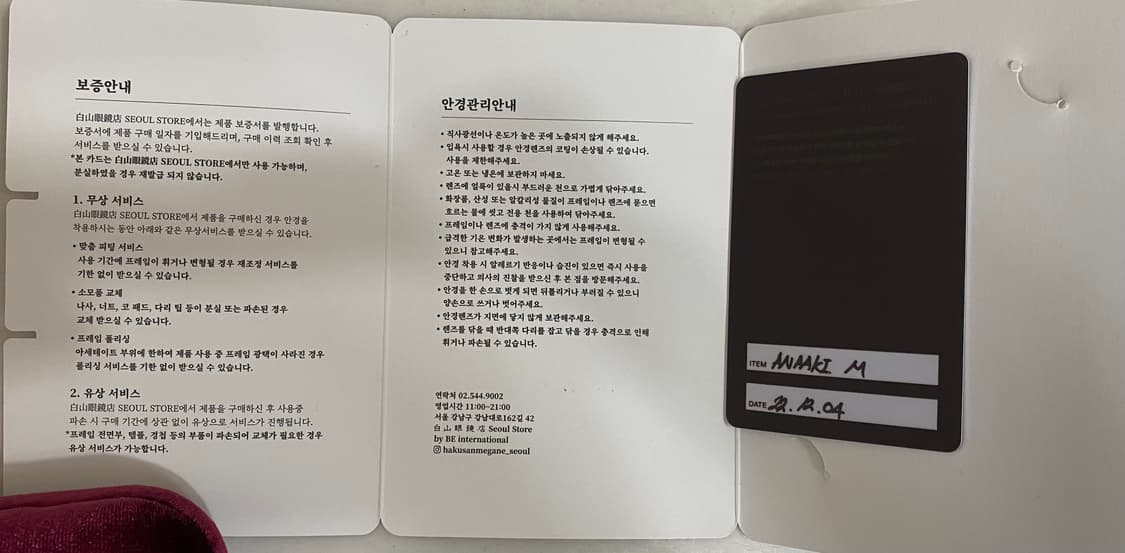 보증안내
白山眼鏡店 SEOUL STORE에서는 제품 보증서를 발행합니다.
보증서에 제품 구매 일자를 기입해드리며, 구매 이력 조회 확인 후
서비스를 받으실 수 있습니다.
*본 카드는 白山眼鏡店 SEOUL STORE에서만 사용 가능하며,
분실하였을 경우 재발급 되지 않습니다.
1. 무상 서비스
白山眼鏡店 SEOUL STORE에서 제품을 구매하신 경우 안경을
착용하시는 동안 아래와 같은 무상서비스를 받으실 수 있습니다.
• 맞춤 피팅 서비스
사용 기간에 프레임이 휘거나 변형될 경우 재조정 서비스를
기한 없이 받으실 수 있습니다.
• 소모품 교체
나사, 너트, 코 패드, 다리 팁 등이 분실 또는 파손된 경우
교체 받으실 수 있습니다.
• 프레임 폴리싱
아세테이트 부위에 한하여 제품 사용 중 프레임 광택이 사라진 경우
폴리싱 서비스를 기한 없이 받으실 수 있습니다.
2. 유상 서비스
白山眼鏡店 SEOUL STORE에서 제품을 구매하신 후 사용중
파손 시 구매 기간에 상관 없이 유상으로 서비스가 진행됩니다.
*프레임 전면부, 템플, 경첩 등의 부품이 파손되어 교체가 필요한 경우
유상 서비스가 가능합니다.
안경관리안내
• 직사광선이나 온도가 높은 곳에 노출되지 않게 해주세요.
• 입욕시 사용할 경우 안경렌즈의 코팅이 손상될 수 있습니다.
사용을 제한해주세요.
• 고온 또는 냉온에 보관하지 마세요.
• 렌즈에 얼룩이 있을시 부드러운 천으로 가볍게 닦아주세요.
• 화장품, 산성 또는 알칼리성 물질이 프레임이나 렌즈에 묻으면
흐르는 물에 씻고 전용 천을 사용하여 닦아주세요.
• 프레임이나 렌즈에 충격이 가지 않게 사용해주세요.
• 급격한 기온 변화가 발생하는 곳에서는 프레임이 변형될 수
있으니 참고해주세요.
• 안경 착용 시 알레르기 반응이나 습진이 있으면 즉시 사용을
중단하고 의사의 진찰을 받으신 후 본 점을 방문해주세요.
• 안경을 한 손으로 벗게 되면 뒤틀리거나 부러질 수 있으니
양손으로 쓰거나 벗어주세요.
• 안경렌즈가 지면에 닿지 않게 보관해주세요.
• 렌즈를 닦을 때 반대쪽 다리를 잡고 닦을 경우 충격으로 인해
휘거나 파손될 수 있습니다.
연락처 02.544.9002
영업시간 11:00~21:00
서울 강남구 강남대로162길 42
白山眼鏡店 Seoul Store
by BE international
hakusanmegane_seoul
ITEM ANAAKI M
DATE 22.12.04